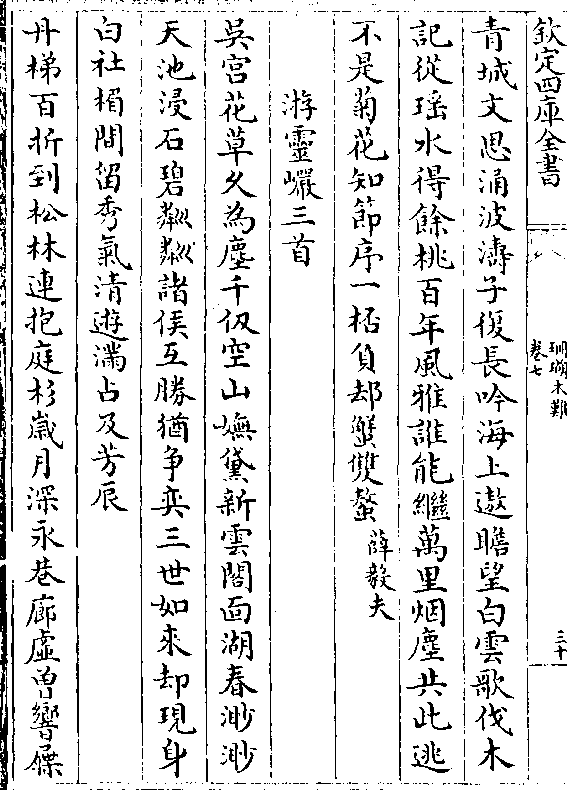 欽定四庫全書
珊瑚木難
卷七
三十
青城文思涌波濤子復長吟海上遨瞻望白雲歌伐木
記從瑶水得餘桃百年風雅誰能繼萬里烟塵共此逃
不是菊花知節序一桮負却蟹雙螯薛毅夫
游靈巗三首
吳宫花草久為塵千仭空山嫵黛新雲閣面湖春渺渺
天池浸石碧粼粼諸侯互勝猶争奕三世如來却現身
白社楣間留秀氣清遊满占及芳辰
丹梯百折到松林連抱庭杉歲月深永巷廊虛曽響屧